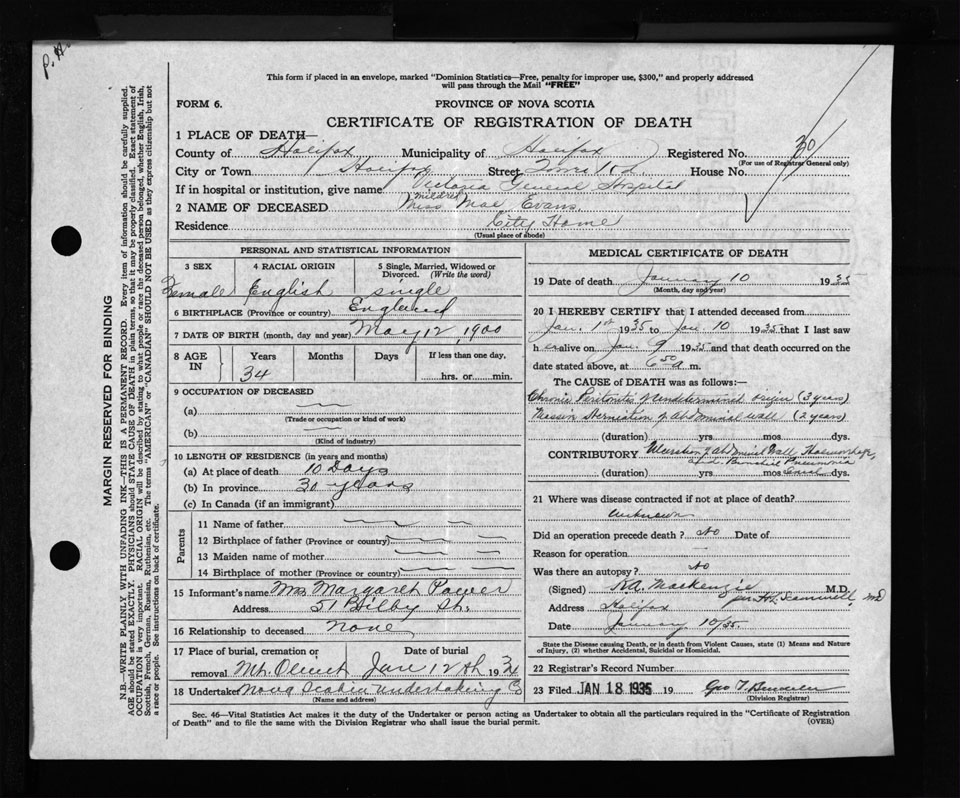 P.H.
This form if placed in an envelope, marked "Dominion Statistics—Free, penalty for improper use, $300," and properly addressed
will pass through the Mail "FREE"
FORM 6.
PROVINCE OF NOVA SCOTIA
CERTIFICATE OF REGISTRATION OF DEATH
1 PLACE OF DEATH—
County of Halifax Municipality of Halifax Registered No. 30
(For use of Registrar General only)
City or Town Halifax Street Tower Rd. House No.
If in hospital or institution, give name Victoria General Hospital
2 NAME OF DECEASED Miss Mildred Mae Evans.
Residence City Home
(Usual place of abode)
PERSONAL AND STATISTICAL INFORMATION
3 SEX 4 RACIAL ORIGIN 5 Single, Married, Widowed or Divorced. (Write the word)
Female English single
6 BIRTHPLACE (Province or country) England
7 DATE OF BIRTH (month, day and year) May 12, 1900
8 AGE IN Years Months Days If less than one day,
34 hrs. or min.
9 OCCUPATION OF DECEASED
(a)
(Trade or occupation or kind of work)
(b)
(Kind of industry)
10 LENGTH OF RESIDENCE (in years and months)
(a) At place of death 10 Days
(b) In province 30 years
(c) In Canada (if an immigrant)
Parents
11 Name of father
12 Birthplace of father (Province or country)
13 Maiden name of mother
14 Birthplace of mother (Province or country)
15 Informant's name Mrs Margaret Power
Address 51 Bilby St.
16 Relationship to deceased None
17 Place of burial, cremation or removal Date of burial
Mt. Olivet Jan 12th 1934
18 Undertaker Nova Scotia Undertaking Co
(Name and address)
MEDICAL CERTIFICATE OF DEATH
19 Date of death January 10 1935
(Month, day and year)
20 I HEREBY CERTIFY that I attended deceased from
Jan. 1st 1935 to Jan. 10 1935 that I last saw
her alive on Jan. 9 1935 and that death occurred on the
date stated above, at 6 50 a m.
The CAUSE OF DEATH was as follows:—
Chronic Peritonitis of undetermined origin (3 years)
Herniation of Abdominal wall (2 years)
(duration) yrs mos dys.
CONTRIBUTORY Ulceration of Abdominal Wall
and Bronchial Pneumonia
(duration) yrs mos dys.
21 Where was disease contracted if not at place of death?
unknown
Did an operation precede death? No Date of
Reason for operation
Was there an autopsy? No
(Signed) K.A. MacKenzie M.D.
Address Halifax per H.L. Scammell MD
Date January 10/35.
State the Disease causing Death, or in death from Violent Causes, state (1) Means and Nature
of Injury, (2) whether Accidental, Suicidal or Homicidal.
22 Registrar's Record Number
23 Filed JAN 18 1935 19
(Division Registrar)
Sec. 46—Vital Statistics Act makes it the duty of the Undertaker or person acting as Undertaker to obtain all the particulars required in the "Certificate of Registration
of Death" and to file the same with the Division Registrar who shall issue the burial permit. (OVER)
MARGIN RESERVED FOR BINDING
N.B.—WRITE PLAINLY WITH UNFADING INK—THIS IS A PERMANENT RECORD. Every item of information should be carefully supplied.
AGE should be stated EXACTLY. PHYSICIANS should STATE CAUSE OF DEATH in plain terms, so that it may be properly classified. Exact statement of
OCCUPATION is very important. RACIAL ORIGIN will be described by stating to what people or race the deceased person belonged, whether English, Irish,
Scottish, French, German, Russian, Ruthenian, etc. The terms "AMERICAN" or "CANADIAN" SHOULD NOT BE USED as they express citizenship but not
a race or people. See instructions on back of certificate.